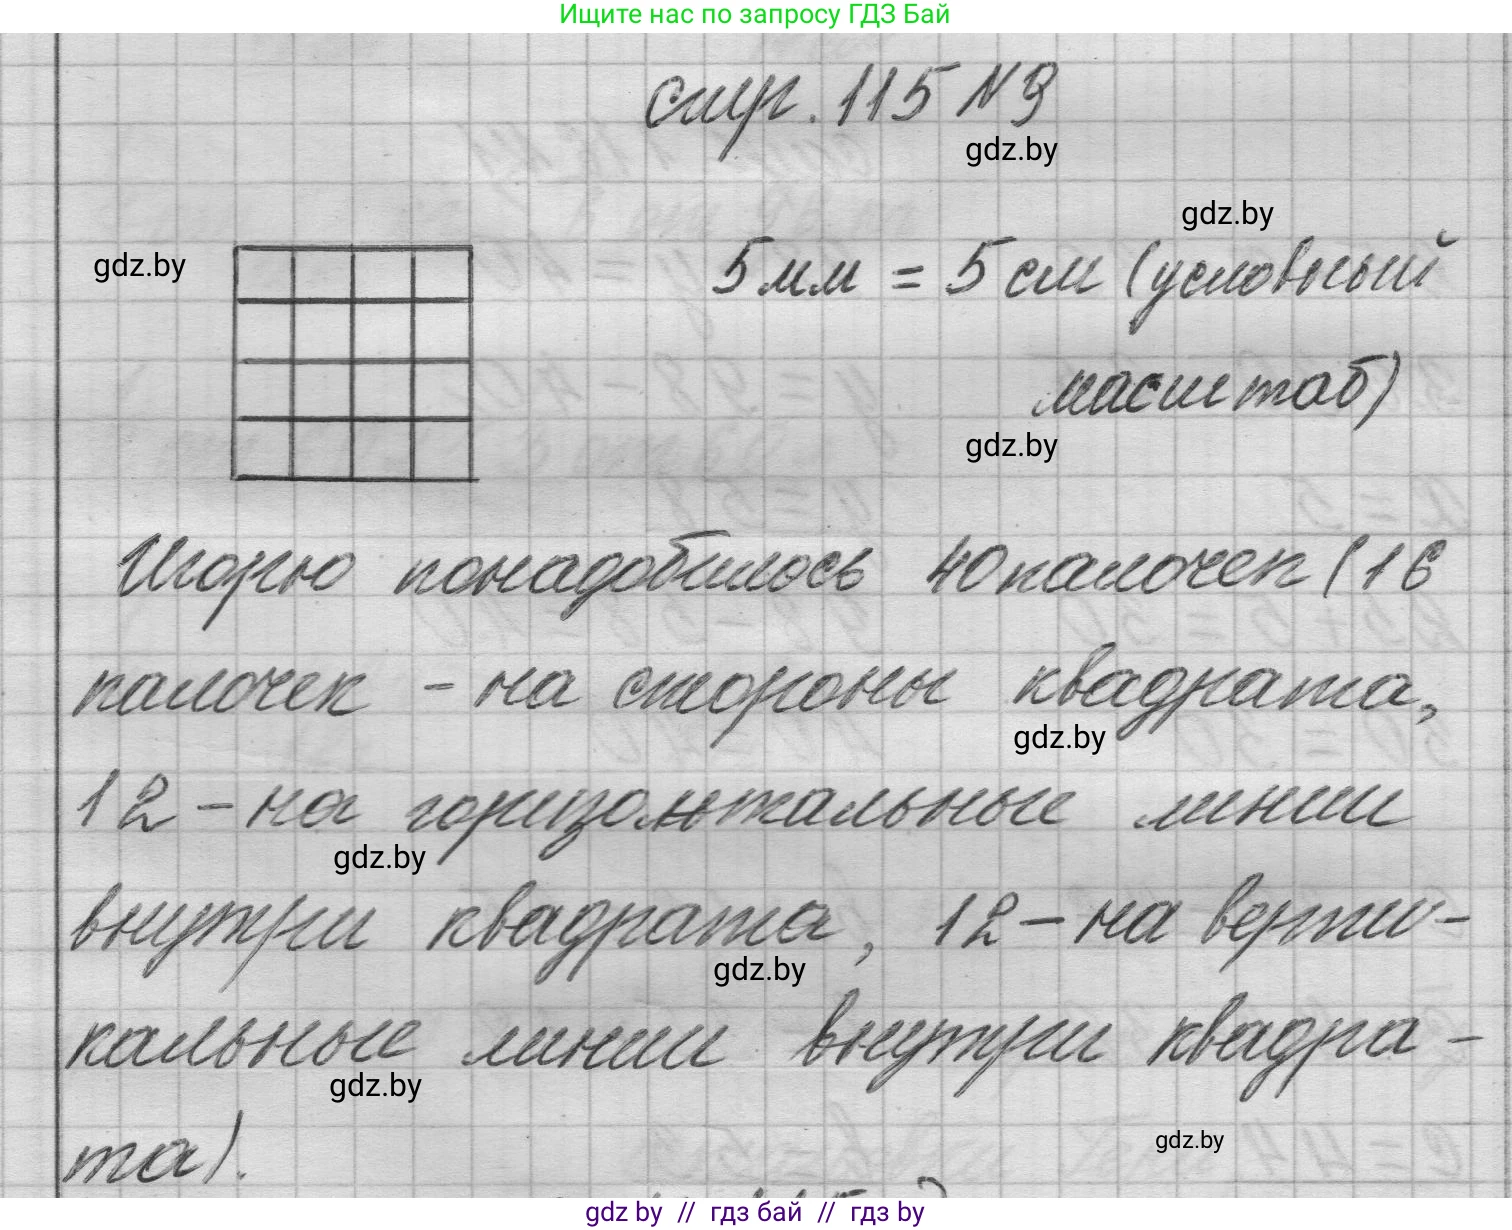 Ищите нас по запросу ГДЗ Бай
стр. 115 N 9
gdz.by
gdz.by
gdz.by
5 мм = 5 см (условный
масштаб)
gdz.by
Игорю понадобилось 40 палочек (16
палочек - на стороны квадрата,
gdz.by
12 - на горизонтальные линии
gdz.by
внутри квадрата, 12 - на верти-
gdz.by
кальные линии внутри квадра-
gdz.by
та).
gdz.by
gdz by // гдз бай // гдз by